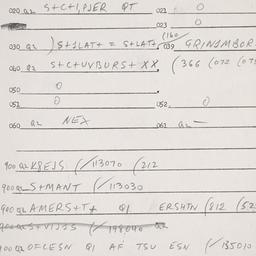 020 a2 S+C+1, PJER QT 021 0
023 0
030 a2 ) S+1LAT+ = S+LAT+ (160 039 GRINIMBOR
040 a2 S+C+UVBURS+XX (366 (072 (07
050 0
051 0 052 0
060 a2 NEX 061 a2 —
900 a2 K8EJS (/113070 (212
900 a2 S+MANT (/113030
900 a2 AMERS+T+ Q1 ERSHTN (812 (52
900 a2 S+VIJSS (/198040 a2
900 a2 OFCESN Q1 AF TSU ESN (/135010